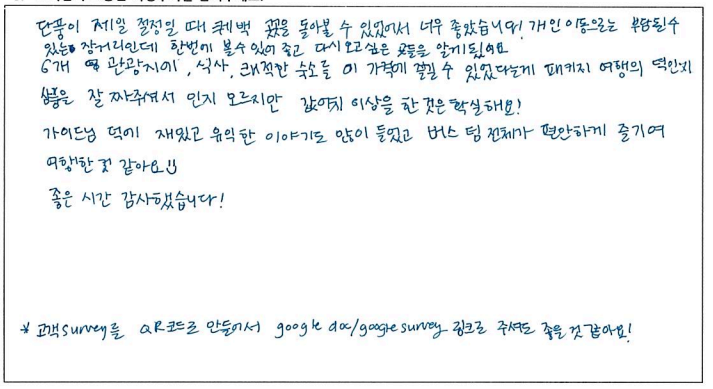 단풍이 제일 절정일 때 퀘백 곳곳을 돌아볼 수 있었어서 너무 좋았습니다! 개인이동으로는 부담될수
있는 장거리인데 한번에 볼수있어 좋고 다시오고싶은 곳들을 알게됬어요
6개 관광지에, 식사, 쾌적한 숙소를 이 가격에 즐길수 있었다는게 패키지 여행의 덕인지
상품을 잘 짜주셔서 인지 모르지만 값어치 이상을 한 것은 확실해요!
가이드님 덕에 재밌고 유익한 이야기도 많이 들었고 버스 팀 전체가 편안하게 즐기며
여행한 것 같아요
좋은 시간 감사했습니다!
* 고객survey를 QR코드로 만들어서 google doc/google survey 링크로 주셔도 좋을것 같아요!